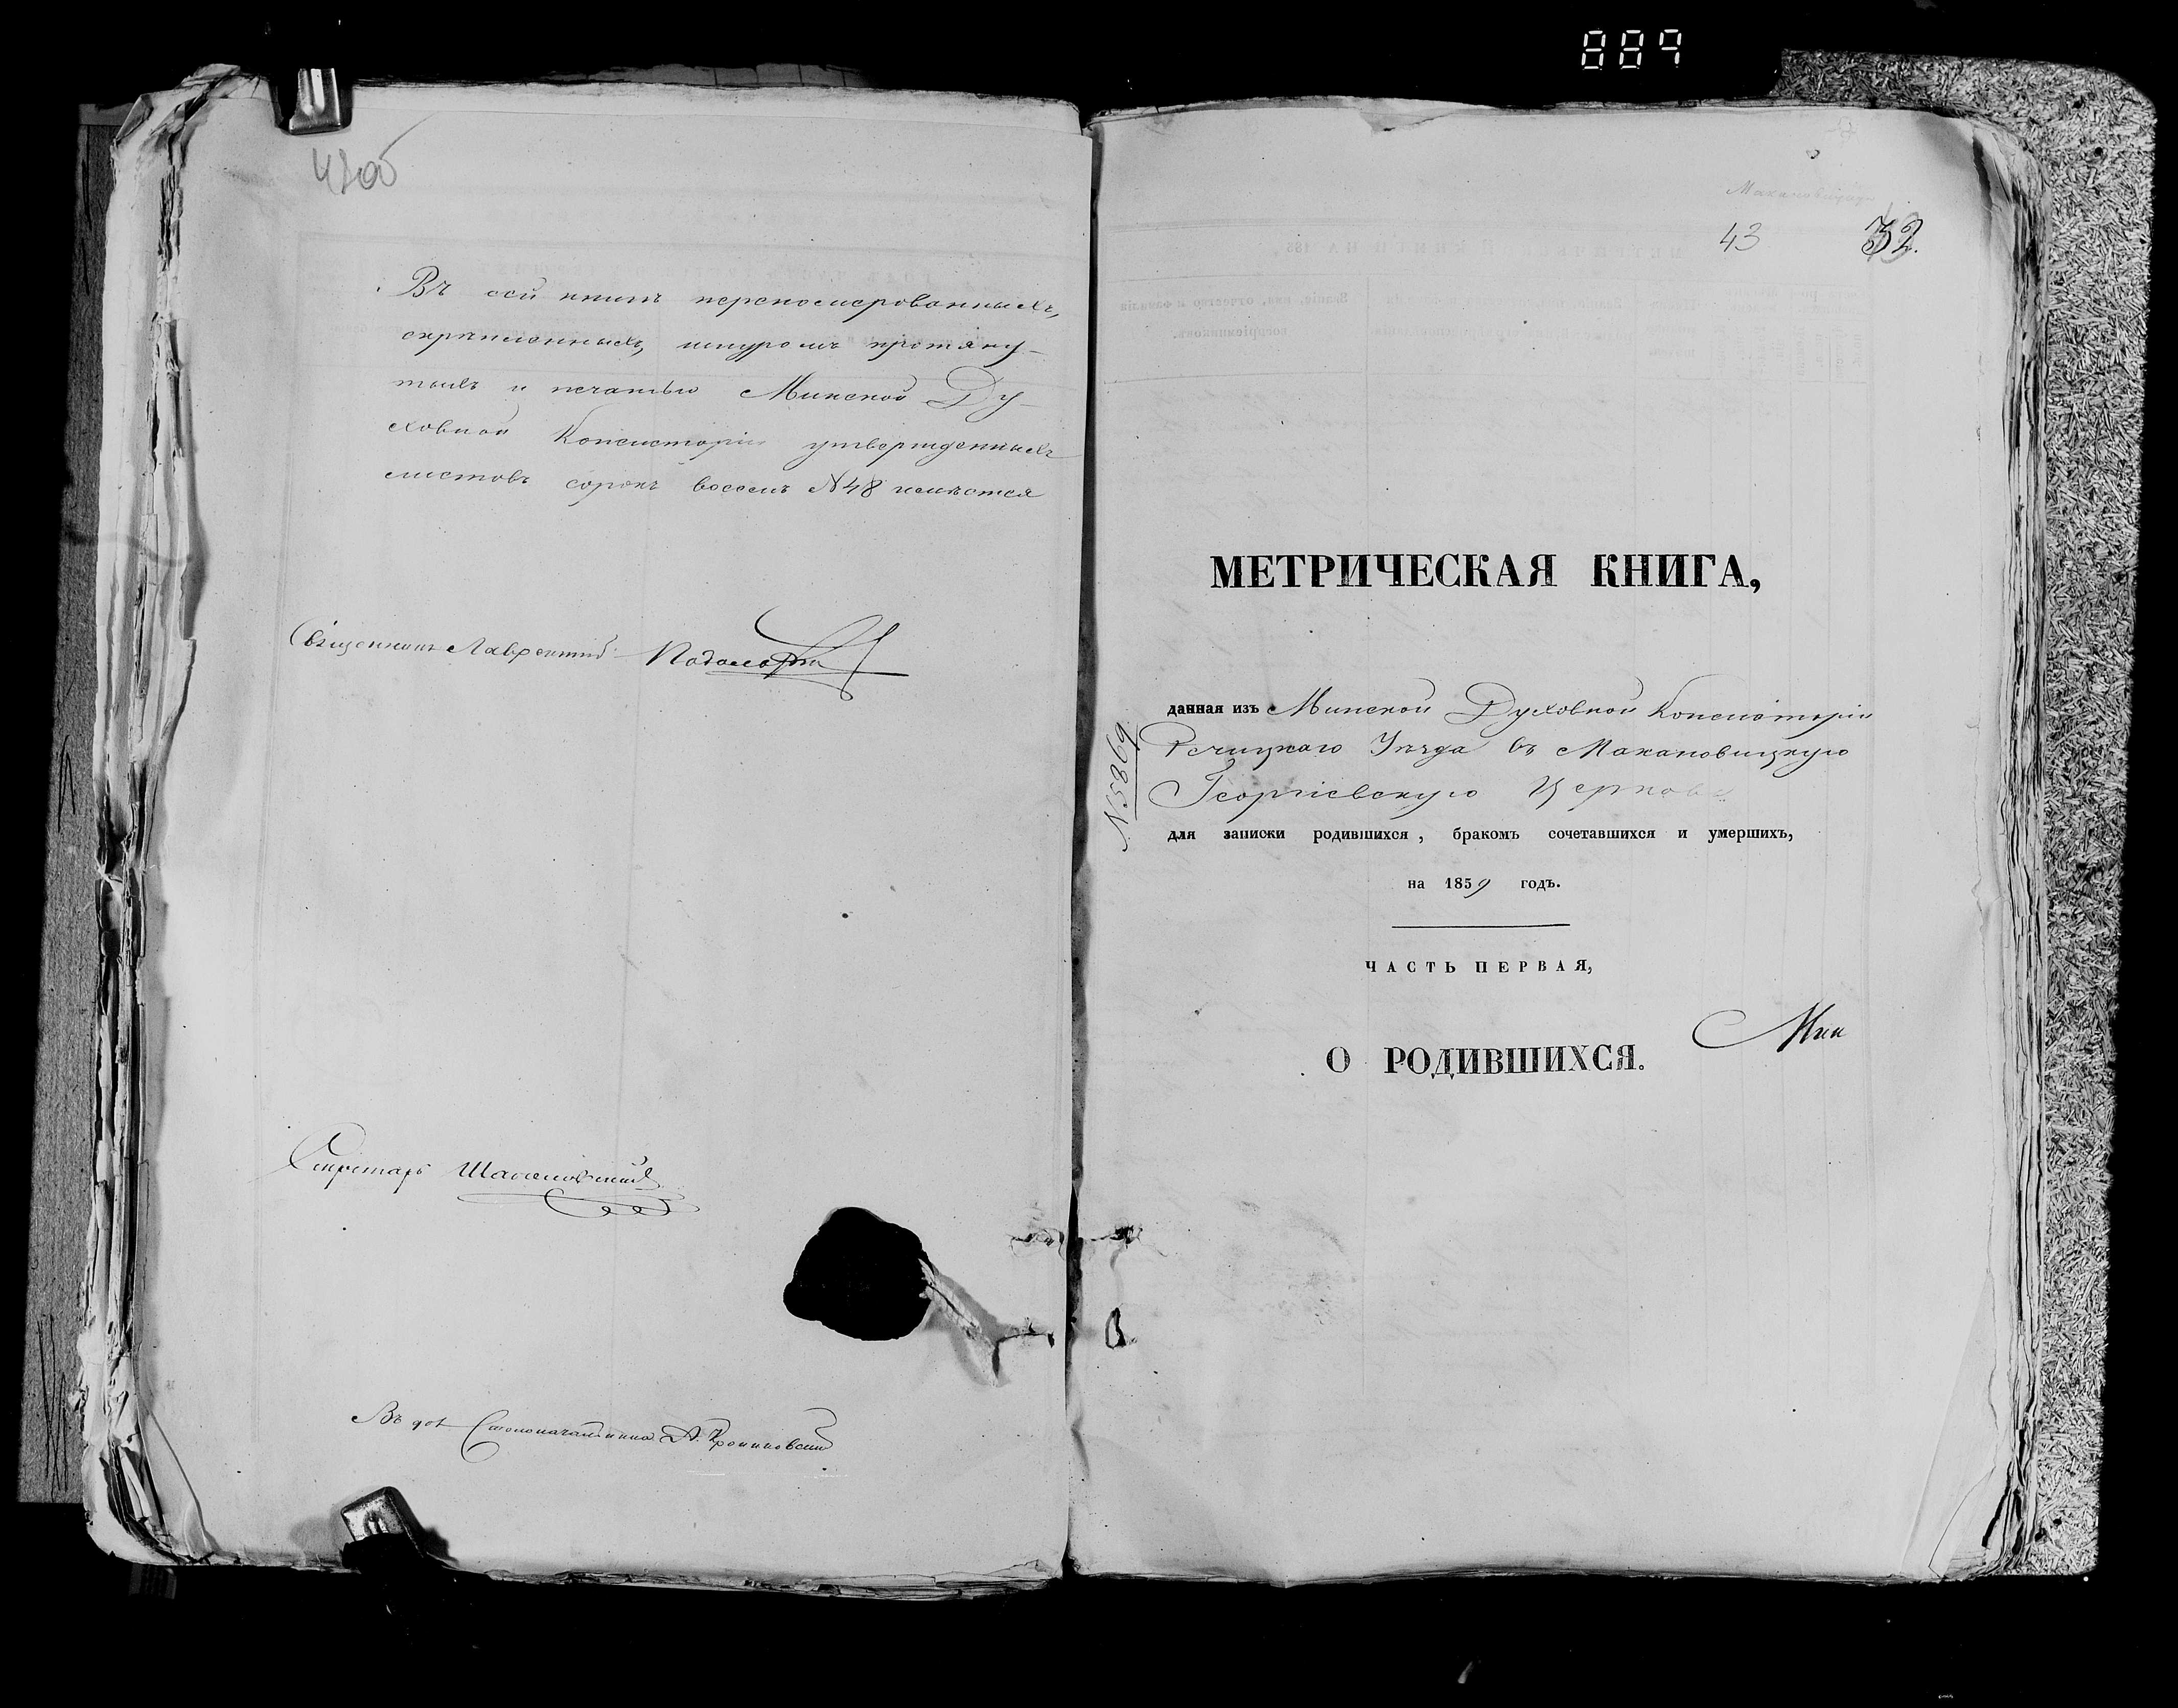 889
48об
Въ сей книгѣ перенумерованныхъ,
скрѣпленныхъ, шнуромъ протяну-
тыхъ и печатью Минской Ду-
ховной Консисторіи утвержденныхъ
листовъ сорокъ восемь №48 имѣется
Священникъ Лаврентій
Секретарь
Въ дол. Столоначальника
Макановицкая
43 32.
МЕТРИЧЕСКАЯ КНИГА,
данная изъ Минской Духовной Консисторіи
Речицкаго Уѣзда въ Макановицкую
Георгіевскую Церковь
№5869
для записки родившихся, бракомъ сочетавшихся и умершихъ,
на 1859 годъ.
ЧАСТЬ ПЕРВАЯ,
О РОДИВШИХСЯ.
Мин